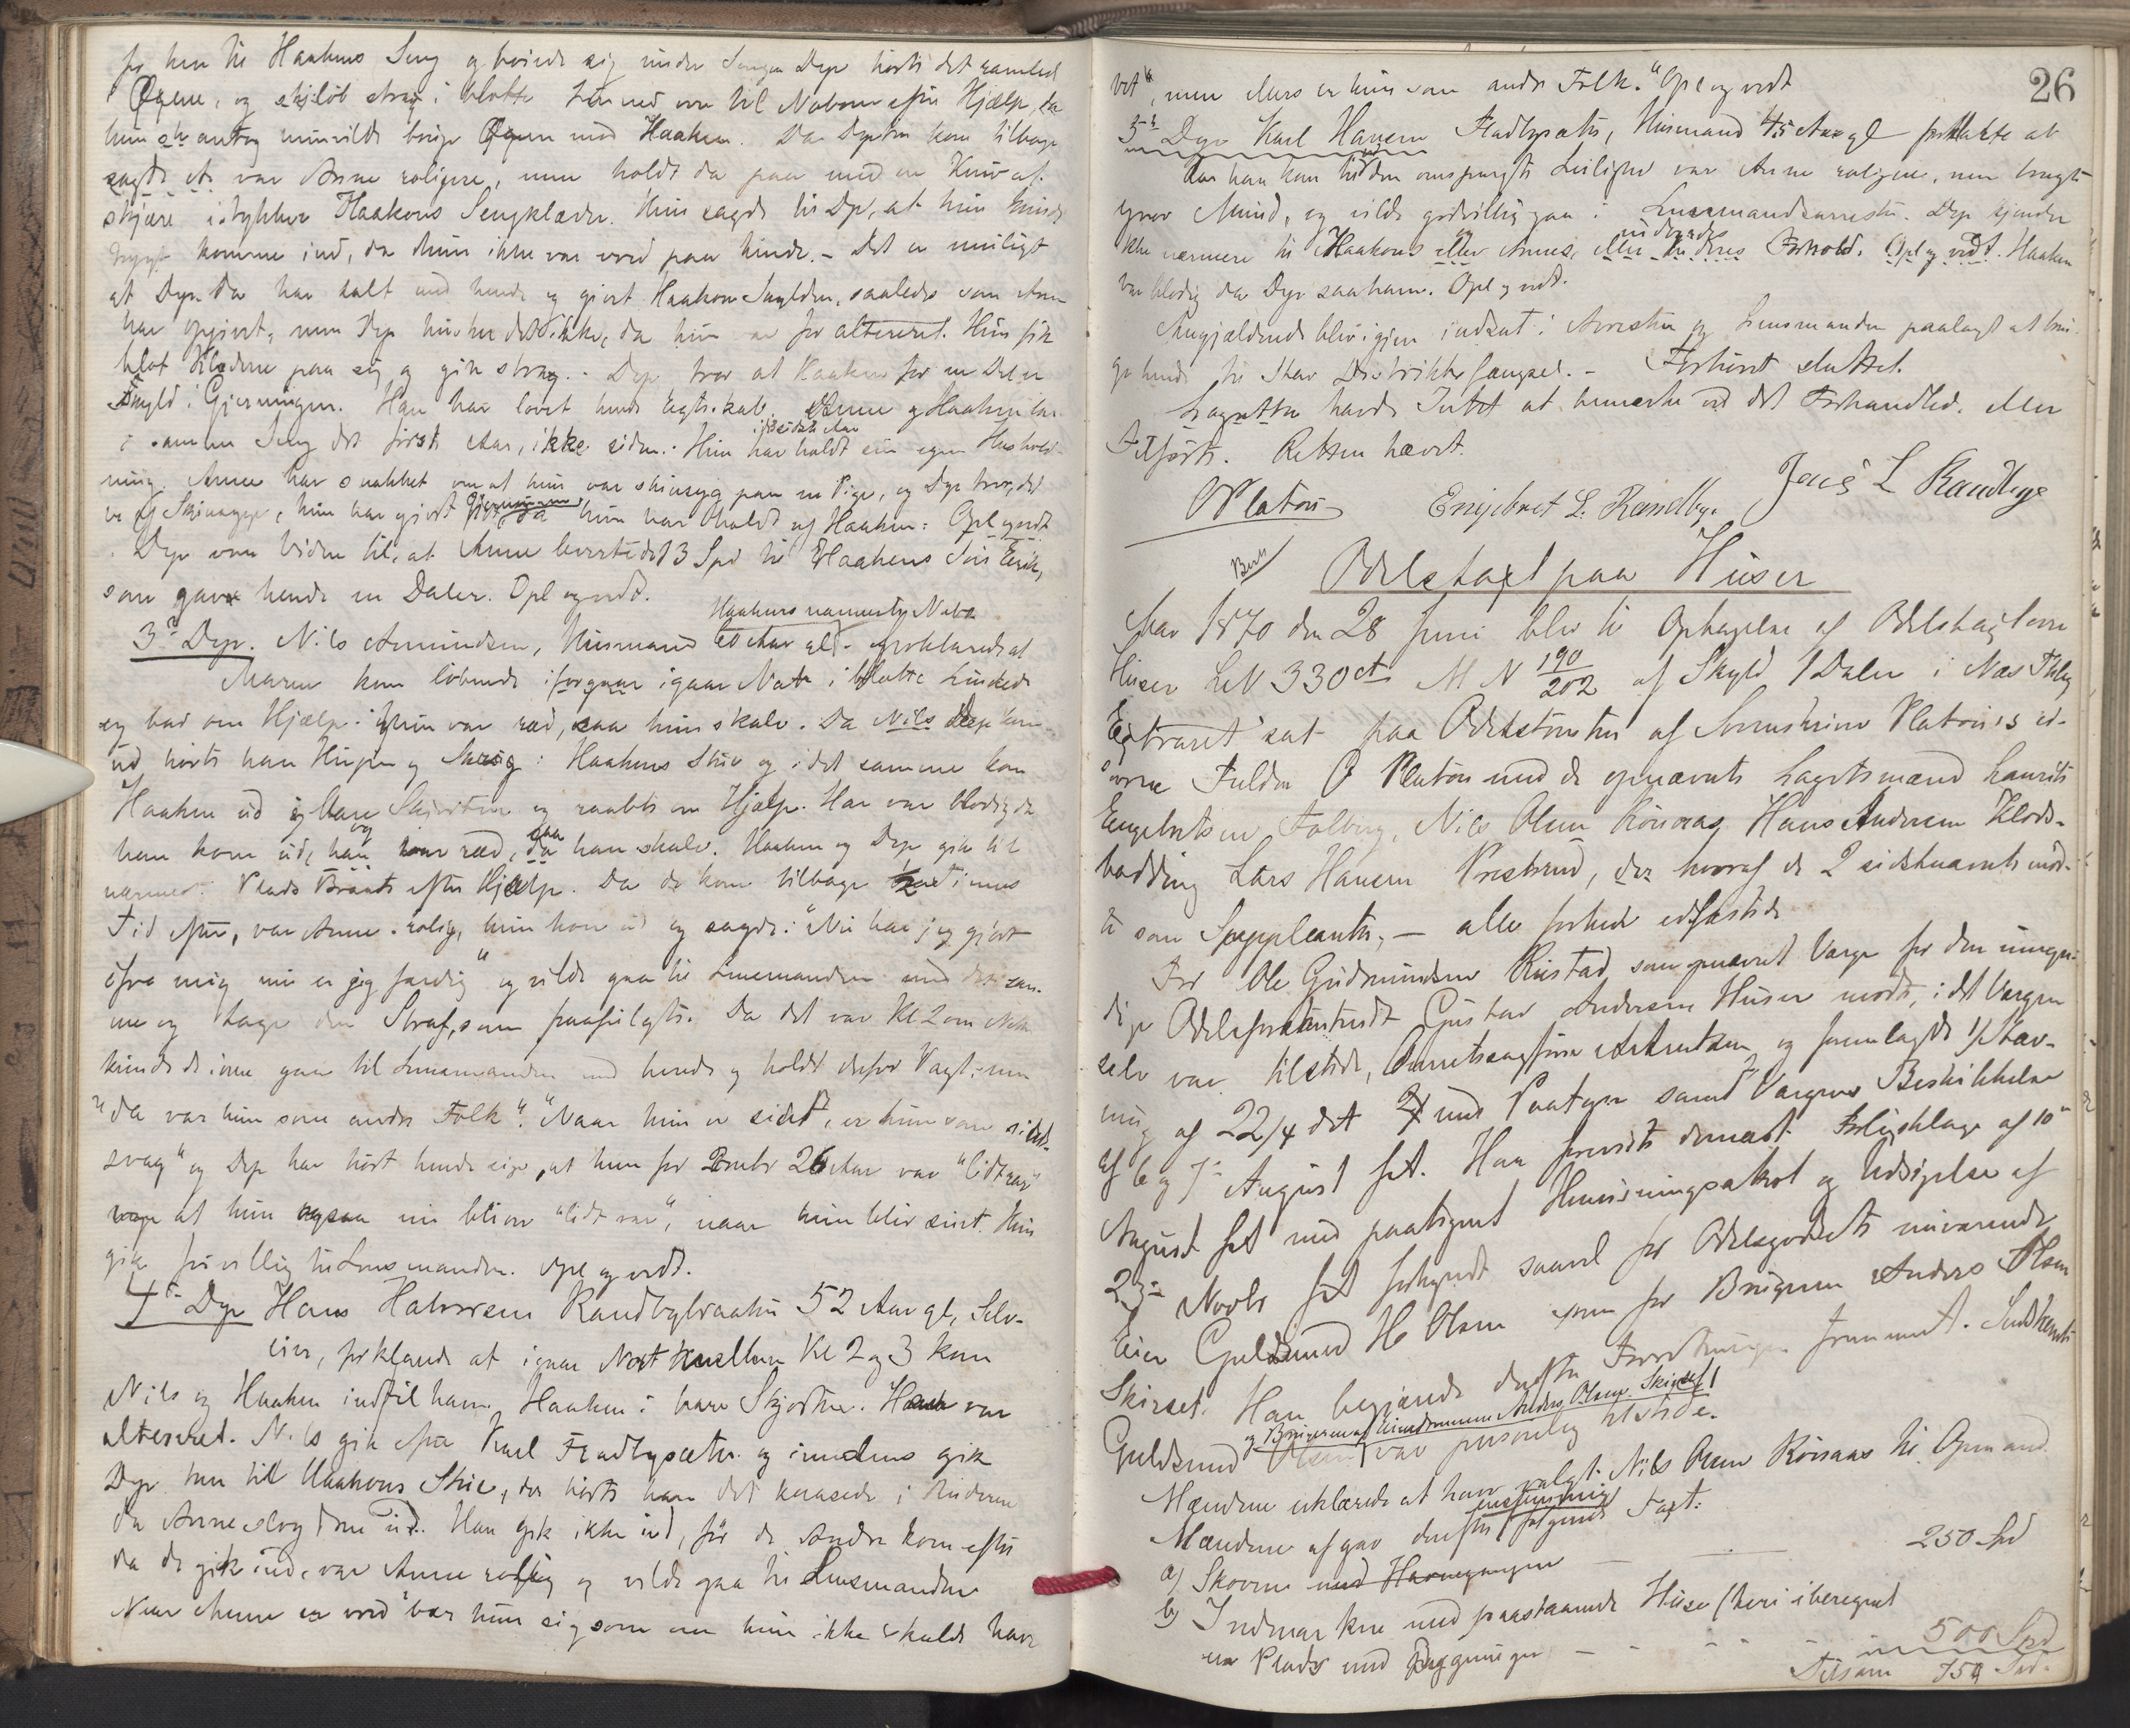 for hen til Haakens Seng og boiede sig under Sengen Dep hørte det ramled
Øxene, og skjløb strax i blotte Linned over til Naboen efter Hjælp, da
hun antog hun vilde bruge Øxen mod Haaken. Da Dep kom tilbage
sagde At var Anne roligere, men holdt da paa med en Kniv at
skjære istykker Haakens Sengklæder. Hun sagde til Dp, at hun kunde
trygt komme ind, da hun ikke var vred paa hende. - Det er muligt
at Dep da har talt med hende og givet Haaken Skylden, saaledes som Anne
har opgivet, men Dep husker det ikke, da hun var for altereret. Hun fik
blot Klæderne paa sig og gik strax. - Dep tror at Haaken for en Del er
Skyld i Gjerningen. Han har lovet hende Egteskab. Anne og Haaken laa
i samme Seng det første Aar, ikke siden. Hun har
i det sidste Aar
holdt sin egen Hushold-
ning. Anne har snakket om at hun var skinsyg paa en Pige, og Dep tror, det
er af Skinsyge, hun har gjort Gjerningen, da hun har holdt af Haaken. Opl og vedt
Dep var Viden til, at Anne leverte det 13 Spd til Haakens Søn Eirik,
som gav hende en Daler. Opl og vedt.
Haakens nærmeste Nabo
3de Dep. Nils Amundsen, Husmand 60 Aar gl. forklarede at
Maren kom løbende iforgaars igaar Nat i blotte Linnede
og bad om Hjælp. Hun var ræd, saa hun skalv. Da Nils Dep kom
ud hørte han Hugen og Skrig i Haakens Stue og i det samme kom
Haaken ud i bare Skjorten og raabte om Hjælp. Han var blodig da
han kom ud, og han var ræd, saa han skalv. Haaken og Dep gik til
nærmeste Plads Braate efter Hjælp. Da de kom tilbage en Times
Tid efter, var Anne rolig, hun kom ud og sagde: "Nu har jeg gjort
ifra mig nu er jeg færdig" og vilde gaa til Lensmanden med det sam-
me og tage den Straf, som paafulgte. Da det var Kl 2 om Natten
kunde de ikke gaa til Lensmanden med hende og holdt derfor Vagt, men
"da var hun som andre Folk". "Naar hun er sint, er hun som sinds-
svag" og Dep har hørt hende sige, at hun for 26 Aar var "lidt rar"
at hun ogsaa nu bliver "lidt rar", naar hun blir sint. Hun
gik frivillig til Lensmanden. Opl og vedt.
4de Dep Hans Halvorsen Randbybraaten 52 Aar gl, Selv-
eier, forklarede at igaar Nat mellem Kl 2 og 3 kom
Nils og Haaken ind til ham, Haaken i bare Skjorten. Haaken var
altereret. Nils gik efter Karl Fladbysæter og imedens gik
Dep hen til Haakens Stue, der hørte han det knasede i Ruderne
da Anne slog dem ud. Han gik ikke ind, før de Andre kom efter
da de gik ind, var Anne rolig og vilde gaa til Lensmanden
Naar Anne er vred "bær hun sig som om hun ikke skulde have
26
vet", men ellers er hun som andre Folk." Opl og vedt
5te Dep Karl Hansen Fladbysæter, Husmand 45 Aar gl forklarte at
da han kom til den omspurgte Leilighed var Anne roligere, men brugte
grov Mund, og vilde godvillig gaa i Lensmandsarresten. Dep kjender
ikke nærmere til Haakens eller Annes, eller til deres indbyrdes Forhold. Opl og vedt. Haaken
var blodig da Dep saa ham. Opl og vedt.
Angjældende blev igjen indsat i Arresten og Lensmanden paalagt at brin-
ge hende til Skar Distriktsfængsel. - Forhøret sluttet.
Lagretten havde Intet at bemærke ved det Forhandlede eller
Tilførte. Retten hævet.
O Platou Engebret L. Randby. Jens L Randbye
Ber
Odelstaxt paa Huser
Aar 1870 den 28 Juni blev til Optagelse af Odelstaxt over
Huser LeN 330 ct M N 190/202 af Skyld 1 Daler i Næs Thlg
Extraret sat paa Odelstomten af Sorenskriver Platou's ed-
svorne Fuldm O Platou med de opnævnte Lagretsmænd Laurits
Engebretsen Folberg, Nils Olsen Kõisaas Hans Andersen Klods-
badding Lars Hansen Prestrud, hvoraf de 2 sidstnævnte mød-
te som Suppleanter, - alle forhen edfæstede
For Ole Gudmundsen Rustad som opnævnt Værge for den umyn-
dige Odelsprætendent Gustav Andersen Huser mødte, idet Værgen
selv var tilstede, Overretssagfører Arentzen og fremlagde 1/ Stæv-
ning af 22/4 det med Paategn samt Værgens Beskikkelse
af 6 og 7de August f A. Han fremviste dernæst Forligsklage af 10de
August f A med paategnet Henvisningsakt og Udsigelse af
23de Novbr f A forkyndt saavel for Odelsgodsets nuværende
Eier Guldsmed H Olsen som for Brugeren Anders Olsen
Skirset. Han begjærede derefter Forretningen fremmet. Indstævnte
Guldsmed Olsen
og Brugeren af Eiendommen Anders Olsen Skirset
var personlig tilstede.
Mændene erklærede at have valgt Nils Olsen Kõisaas til Opmand
Mændene afgav derefter
enstemmig
følgende Taxt:
a) Skoven med Havnegangen — 250 Spd
b) Indmarken med paastaaende Huse (heri iberegnet
en Plads med Bygninger — 500 Spd
Tilsam 750 Spd.